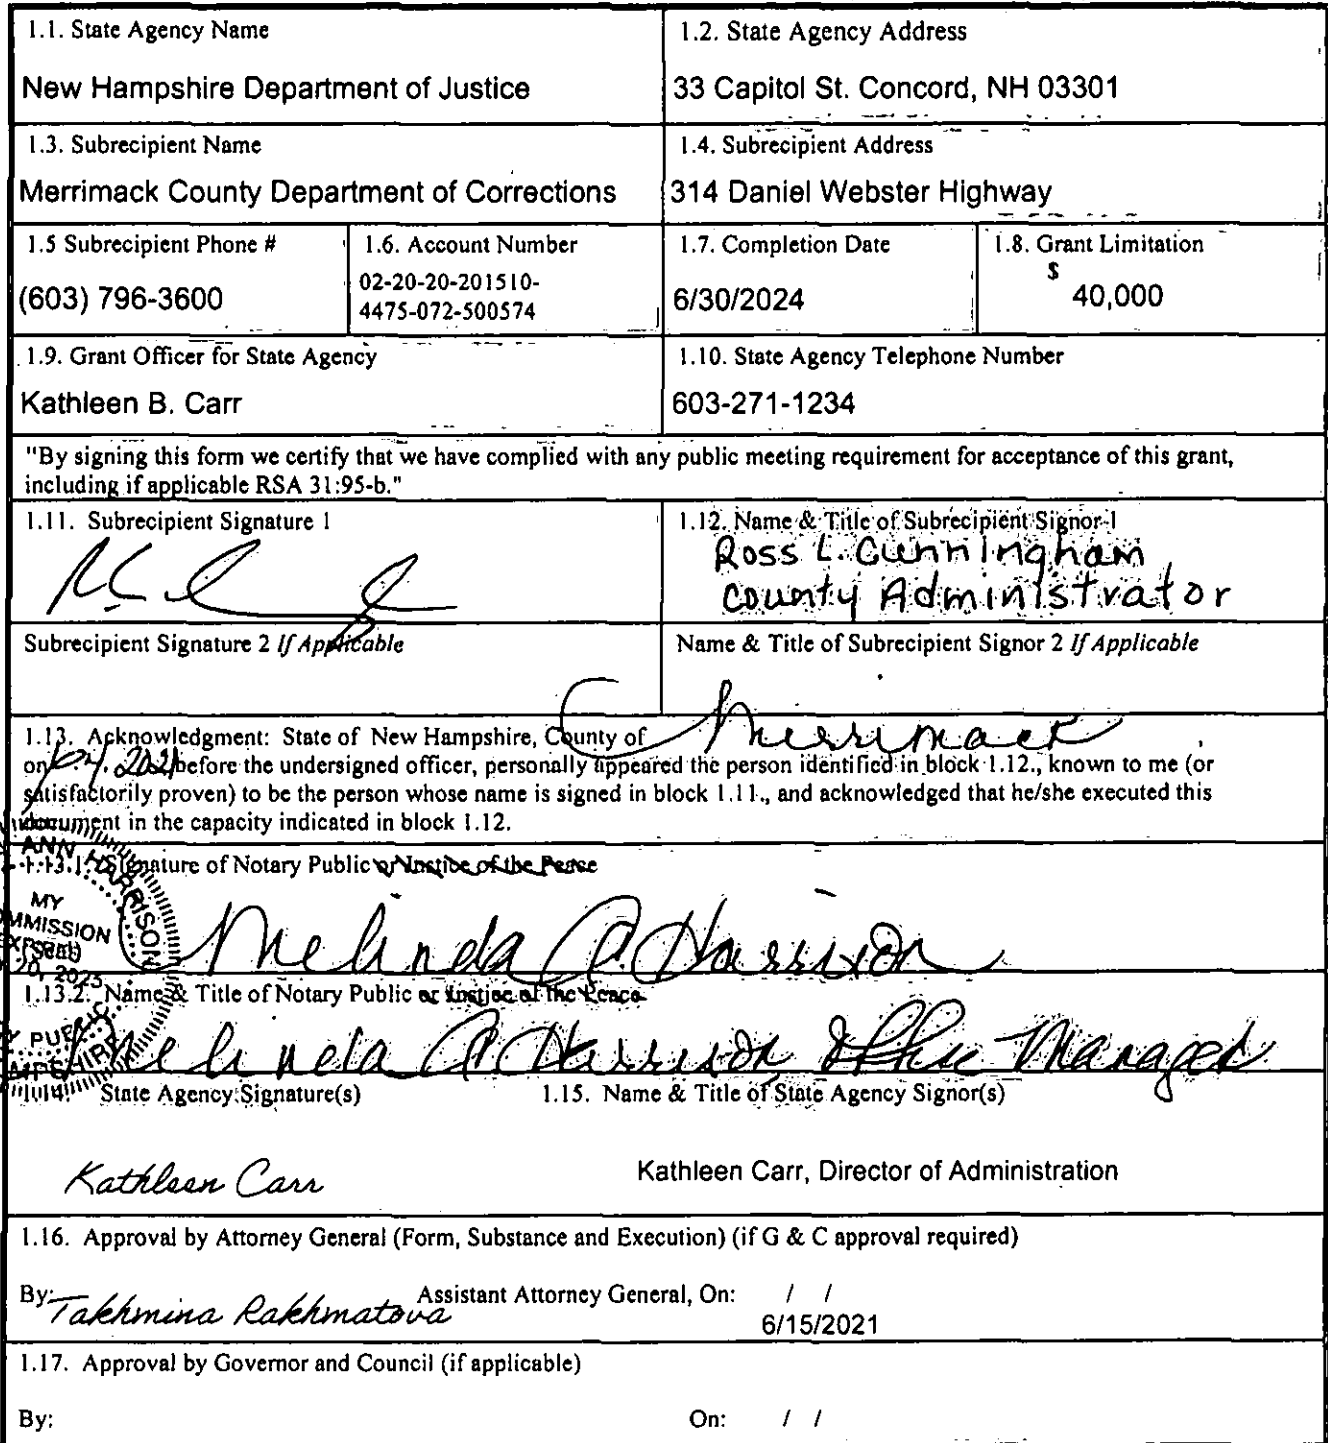 1.1. State Agency Name
New Hampshire Department of Justice
1.2. State Agency Address
33 Capitol St. Concord, NH 03301
1.3. Subrecipient Name
Merrimack County Department of Corrections
1.4. Subrecipient Address
314 Daniel Webster Highway
1.5 Subrecipient Phone #
(603) 796-3600
1.6. Account Number
02-20-20-201510-
4475-072-500574
1.7. Completion Date
6/30/2024
1.8. Grant Limitation
$ 40,000
1.9. Grant Officer for State Agency
Kathleen B. Carr
1.10. State Agency Telephone Number
603-271-1234
"By signing this form we certify that we have complied with any public meeting requirement for acceptance of this grant,
including if applicable RSA 31:95-b."
1.11. Subrecipient Signature 1
1.12. Name & Title of Subrecipient Signor 1
Ross L. Cunningham
County Administrator
Subrecipient Signature 2 If Applicable
Name & Title of Subrecipient Signor 2 If Applicable
1.13. Acknowledgment: State of New Hampshire, County of Merrimack
on 2021 before the undersigned officer, personally appeared the person identified in block 1.12., known to me (or
satisfactorily proven) to be the person whose name is signed in block 1.11., and acknowledged that he/she executed this
document in the capacity indicated in block 1.12.
1.13.1. Signature of Notary Public or Justice of the Peace
ANN HARRISON
MY
(Seal)
2025
Melinda A. Harrison
1.13.2. Name & Title of Notary Public or Justice of the Peace
Melinda A. Harrison, Office Manager
State Agency Signature(s)
1.15. Name & Title of State Agency Signor(s)
Kathleen Carr
Kathleen Carr, Director of Administration
1.16. Approval by Attorney General (Form, Substance and Execution) (if G & C approval required)
By: Takhmina Rakhmatova Assistant Attorney General, On: / /
6/15/2021
1.17. Approval by Governor and Council (if applicable)
By: On: / /